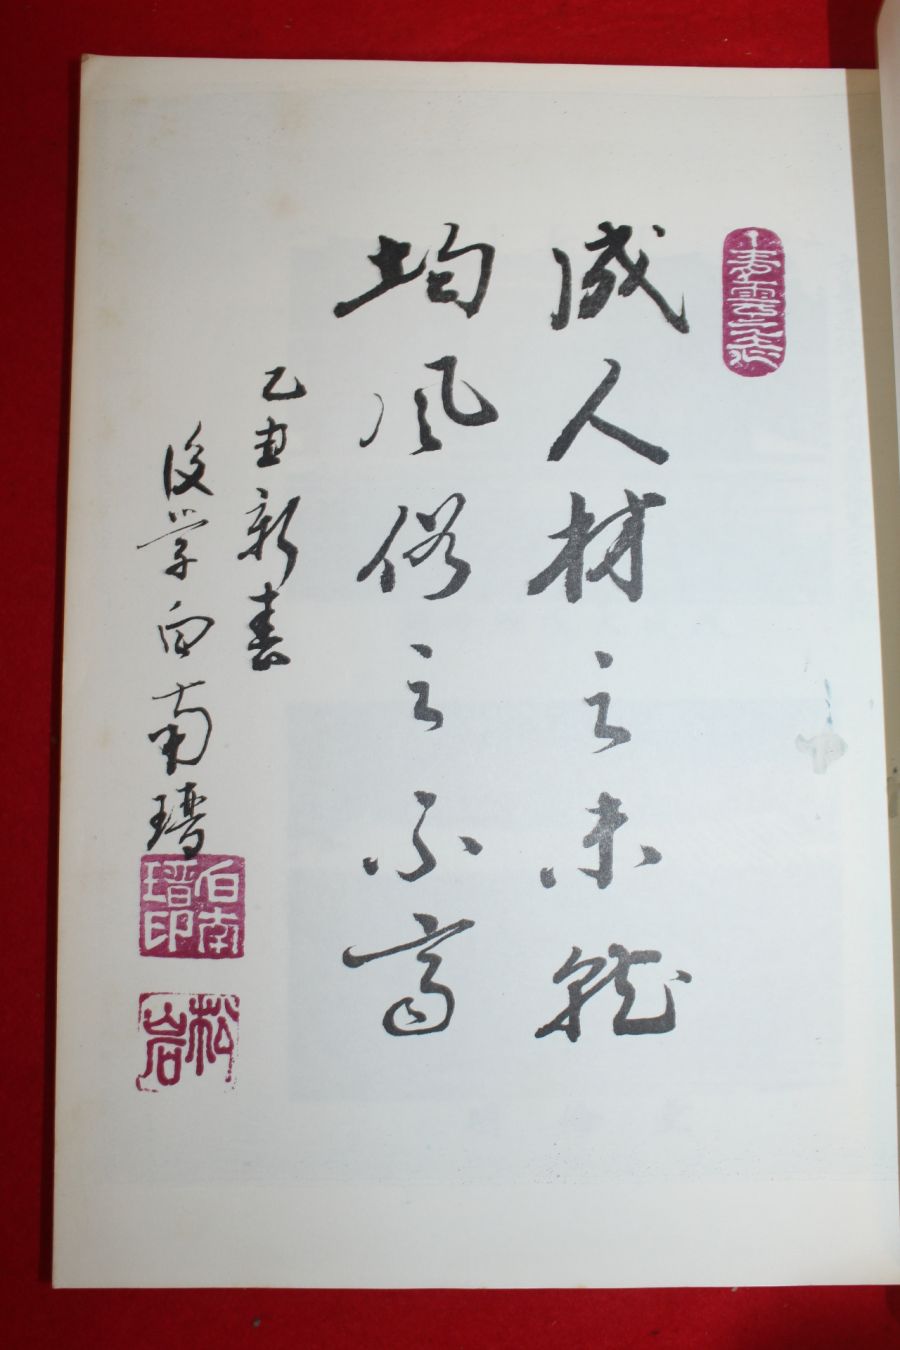 靑雲之志
成人材之未就
均風俗之不齊
乙丑新春
後学白南瑨
白南瑨印
松岩